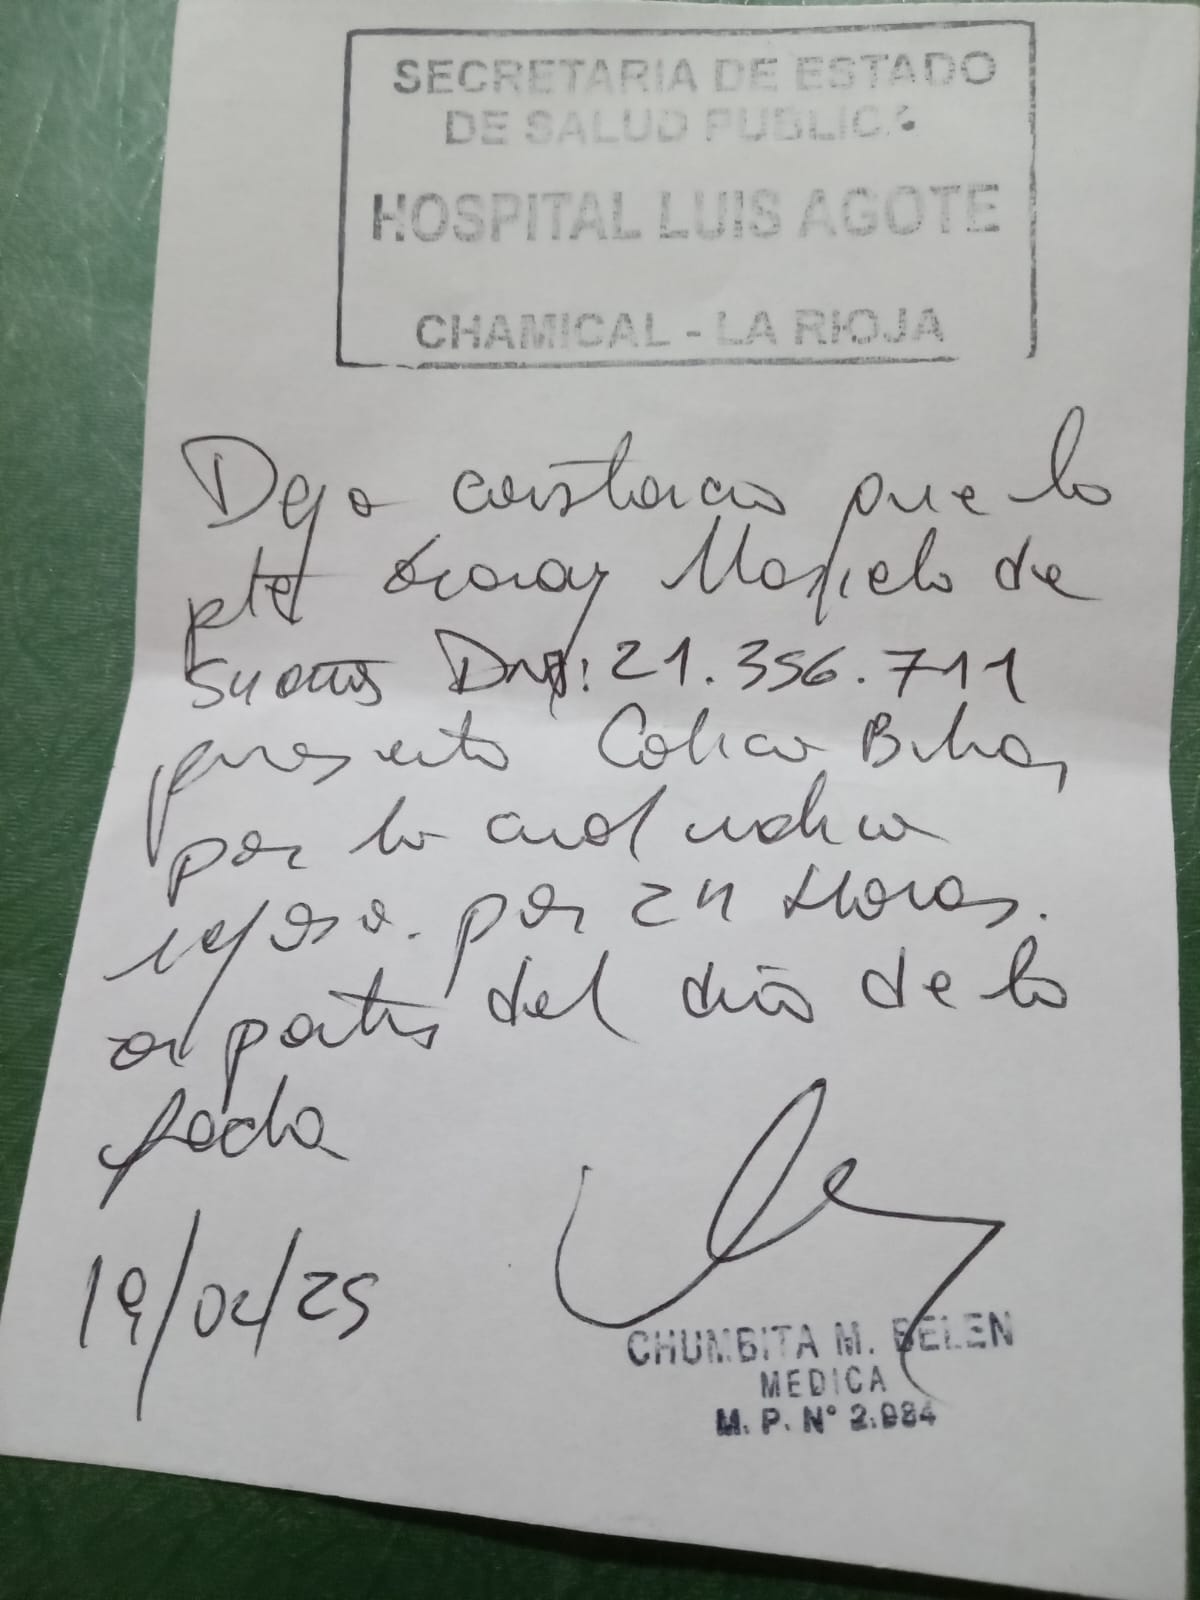 SECRETARIA DE ESTADO
DE SALUD PUBLICA
HOSPITAL LUIS AGOTE
CHAMICAL - LA RIOJA
Dejo constancia que la
pte Marcela de
54 años DNI: 21.356.711
presento Colico Biliar,
por lo cual indico
reposo. por 24 Horas.
a partir del día de la
fecha
19/02/25
CHUMBITA M. BELEN
MEDICA
M. P. N° 2.984